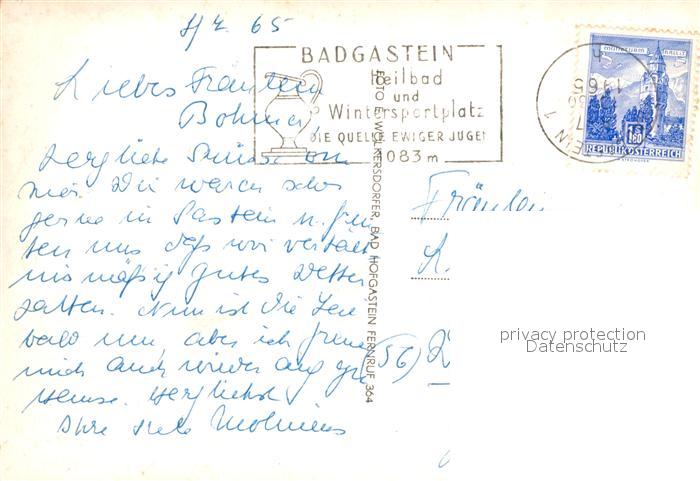 65
BADGASTEIN
Heilbad
und
Wintersportplatz
DIE QUELLE EWIGER JUGEND
1083 m
STEIN 1
1965
MÜNZTURM HALL i.T.
1.80
REPUBLIK ÖSTERREICH
Liebes Fräulein
Böhme,
Herzliche Grüsse von
mir. Wir waren sehr
gerne in Gastein u. freu
ten uns daß wir verhält
nismäßig gutes Wetter
hatten. Nun ist die Zeit
bald um, aber ich freue
mich auch wieder auf zu
Hause. Herzlichst
Ihre
FOTO E. WOLKERSDORFER, BAD HOFGASTEIN FERNRUF 364
Fräulein
(56)
privacy protection
Datenschutz